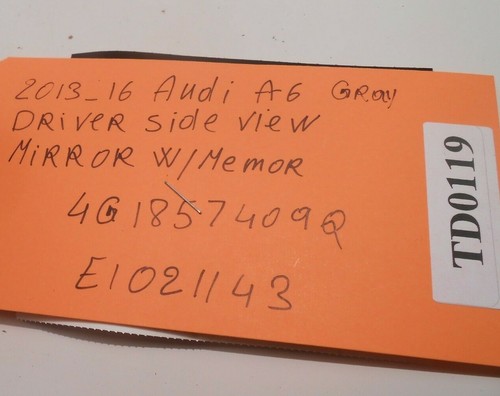 2013-16 Audi A6 Gray
DRIVER Side View
MiRROR W/Memor
4G1857409Q
E1021143
TD0119